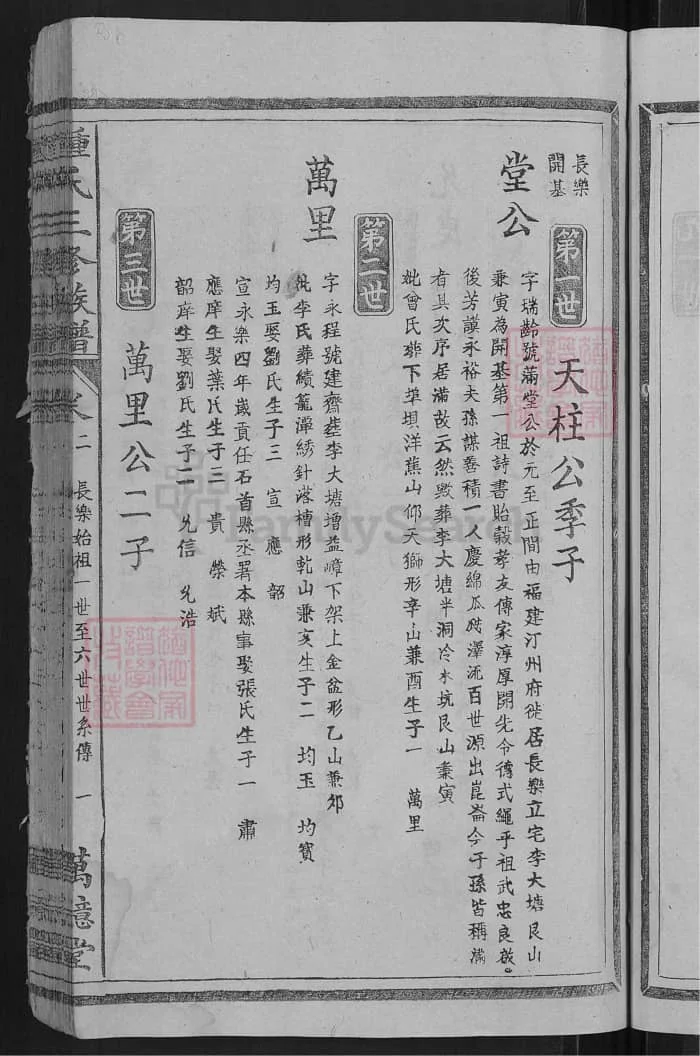 長樂
開基
堂公
第一世
天柱公季子
字瑞齡號滿堂公於元至正間由福建汀州府徙居長樂立宅李大塘艮山
兼寅為開基第一祖詩書貽穀孝友傳家淳厚開先令德式繩乎祖武忠良啟
後芳謨永裕夫孫謀善積一人慶綿瓜瓞澤流百世源出崑崙今子孫皆稱滿
者其次序居滿故云然歿葬李大塘半洞冷水坑艮山兼寅
妣曾氏葬下華坝洋蕉山仰天獅形辛山兼酉生子一 萬里
第二世
萬里
字永程號建齋葬李大塘增益嶂下架上金盆形乙山兼卯
妣李氏葬績籠潭綉針落槽形乾山兼亥生子二 均玉 均寶
第三世
萬里公二子
均玉娶劉氏生子三 宣 應 韶
宣永樂四年歲貢任石首縣丞署本縣事娶張氏生子一 肅
應庠生娶葉氏生子三 貴 榮 斌
韶庠生娶劉氏生子二 允信 允浩
鍾氏三修族譜
卷二 長樂始祖一世至六世世系傳 一
萬億堂
FamilySearch